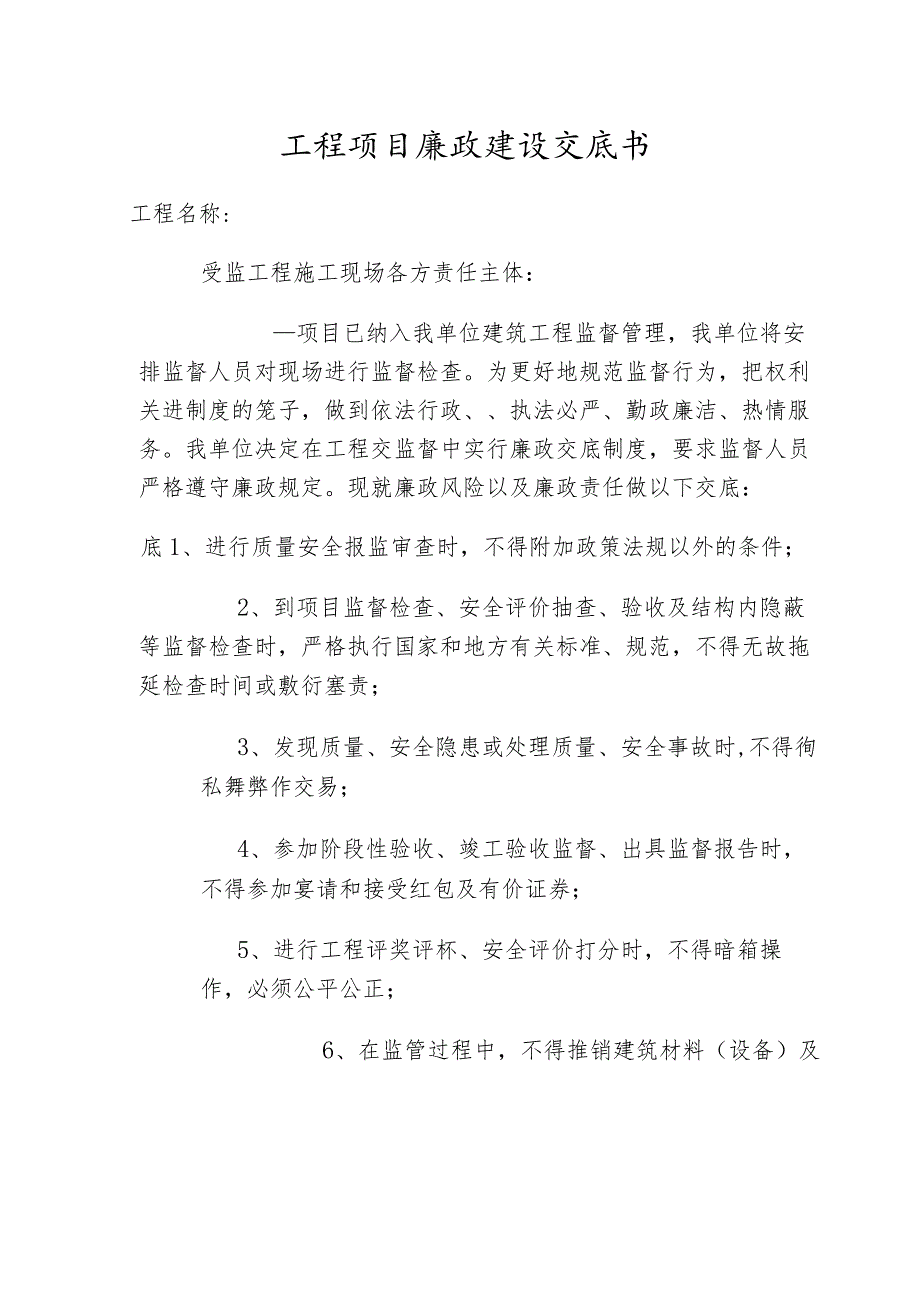 工程项目廉政建设交底书
工程名称:
受监工程施工现场各方责任主体：
—项目已纳入我单位建筑工程监督管理，我单位将安
排监督人员对现场进行监督检查。为更好地规范监督行为，把权利
关进制度的笼子，做到依法行政、、执法必严、勤政廉洁、热情服
务。我单位决定在工程交监督中实行廉政交底制度，要求监督人员
严格遵守廉政规定。现就廉政风险以及廉政责任做以下交底：
底1、进行质量安全报监审查时，不得附加政策法规以外的条件；
2、到项目监督检查、安全评价抽查、验收及结构内隐蔽
等监督检查时，严格执行国家和地方有关标准、规范，不得无故拖
延检查时间或敷衍塞责；
3、发现质量、安全隐患或处理质量、安全事故时,不得徇
私舞弊作交易；
4、参加阶段性验收、竣工验收监督、出具监督报告时，
不得参加宴请和接受红包及有价证券；
5、进行工程评奖评杯、安全评价打分时，不得暗箱操
作，必须公平公正；
6、在监管过程中，不得推销建筑材料（设备）及